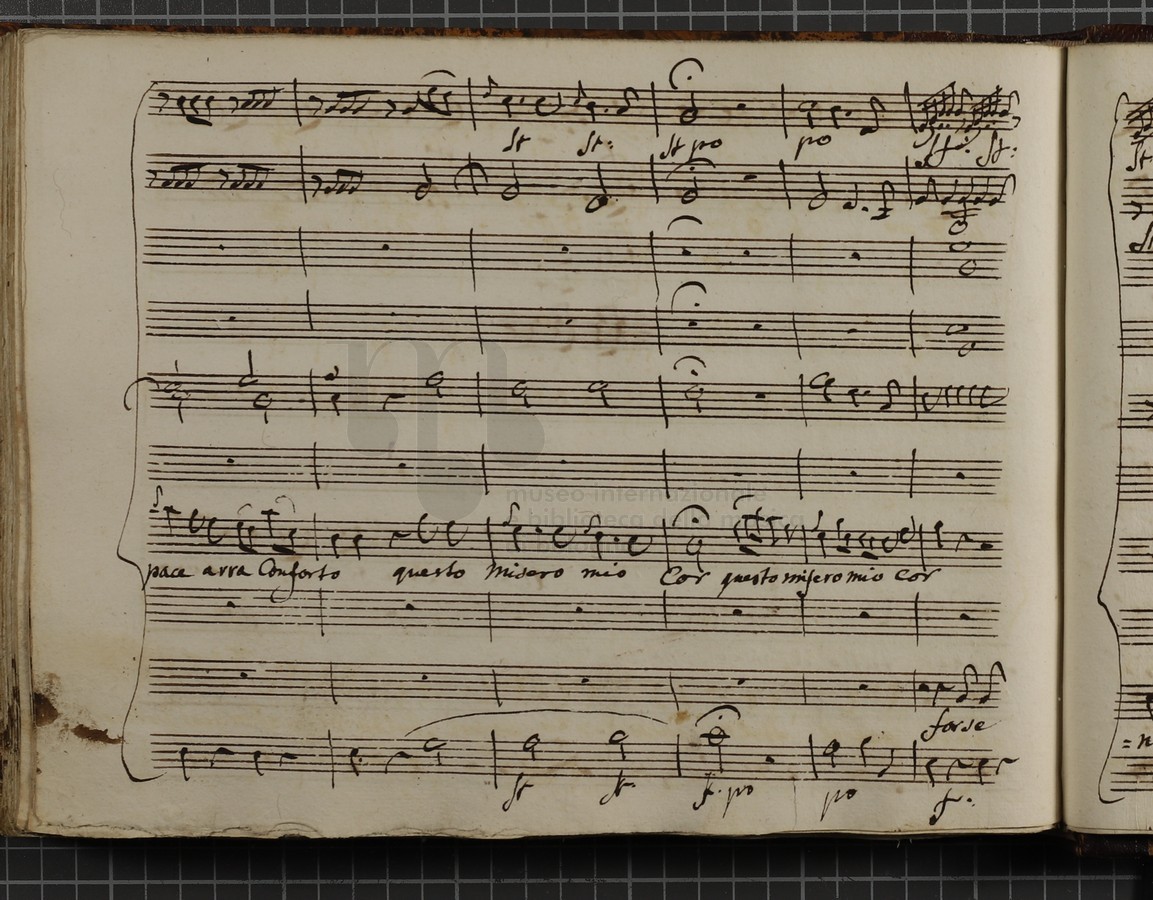 st st: st po po sf: sf:
museo internazionale
biblioteca della musica
pace avra Conforto questo Misero mio Cor questo misero mio Cor
forse
st st f. po po f: